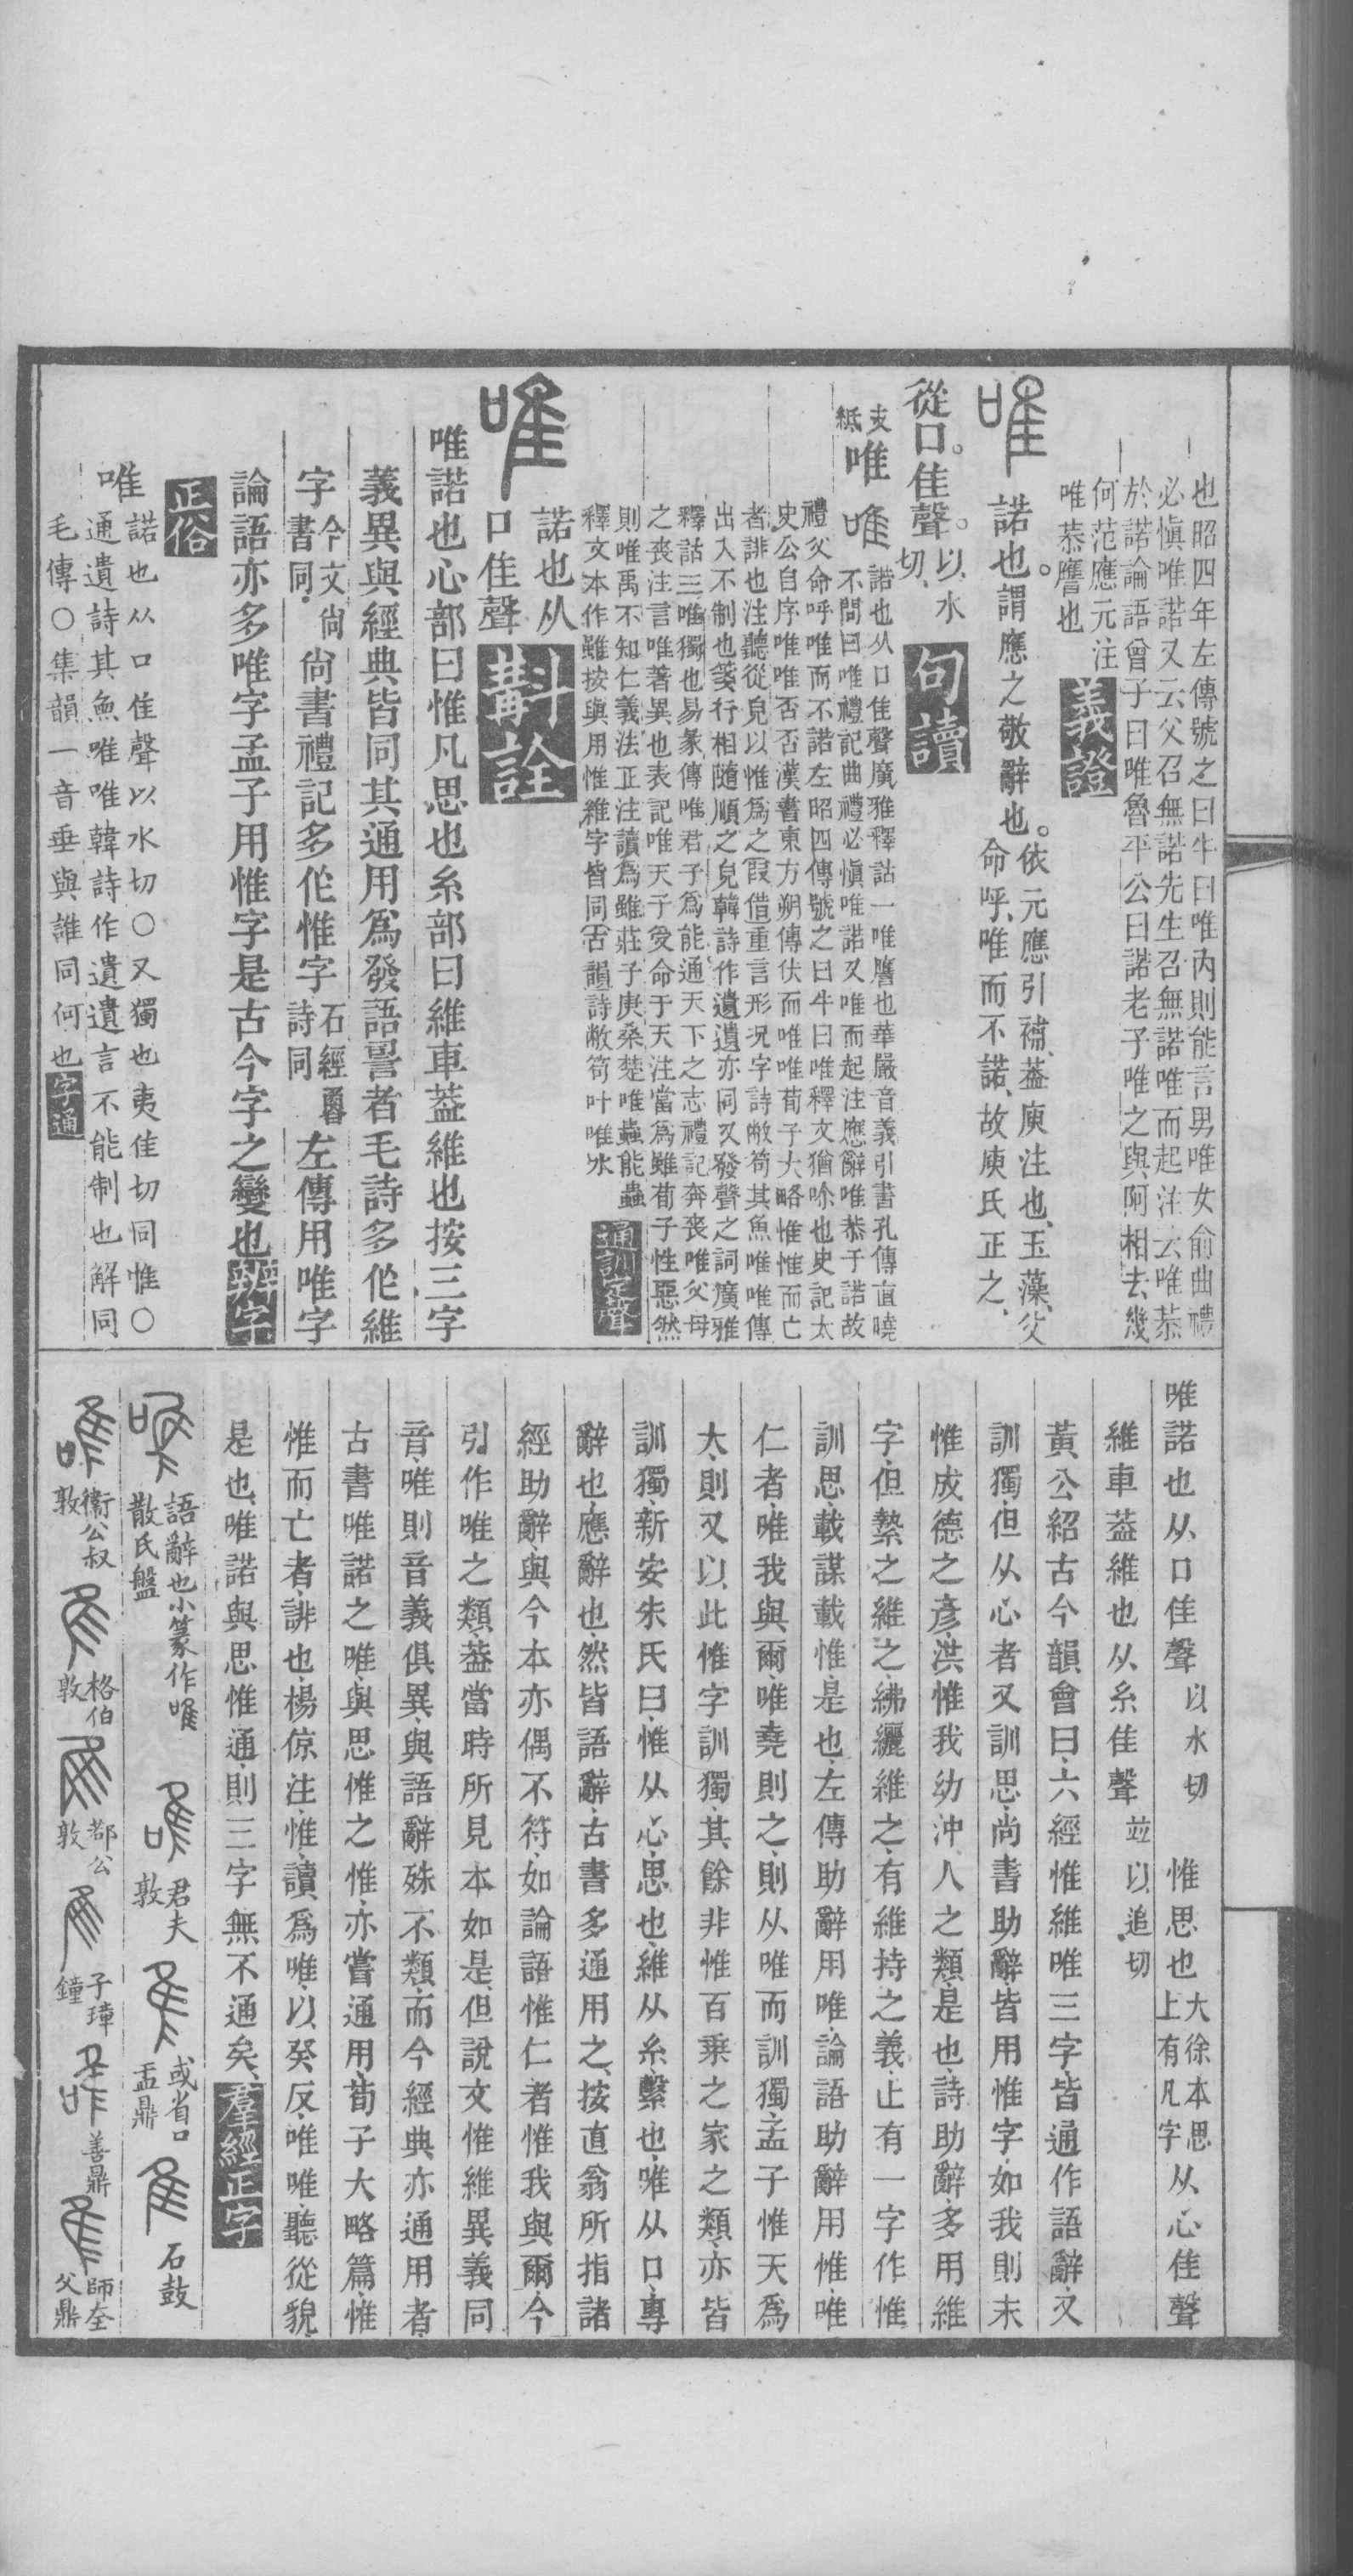 也昭四年左傳號之曰牛曰唯內則能言男唯女俞曲禮
必愼唯諾又云父召無諾先生召無諾唯而起注云唯恭
於諾論語曾子曰唯魯平公曰諾老子唯之與阿相去幾
何范應元注
唯恭譍也
義證
唯
諾也。謂應之敬辭也。依元應引補、葢庾注也、玉藻、父
命呼、唯而不諾、故庾氏正之、
從口。隹聲。以水
切、
句讀
支
紙
唯
唯
諾也从口隹聲廣雅釋詁一唯譍也華嚴音義引書孔傳直曉
不問曰唯禮記曲禮必愼唯諾又唯而起注應辭唯恭于諾故
禮父命呼唯而不諾左昭四傳號之曰牛曰唯釋文猶唹也史記太
史公自序唯唯否否漢書東方朔傳伏而唯唯荀子大略惟惟而亡
者誹也注聽從皃以惟爲之叚借重言形況字詩敝笱其魚唯唯傳
出入不制也箋行相隨順之皃韓詩作遺遺亦同又發聲之詞廣雅
釋詁三唯獨也易彖傳唯君子爲能通天下之志禮記奔喪唯父母
之喪注言唯著異也表記唯天子受命于天注當爲雖荀子性惡然
則唯禹不知仁義法正注讀爲雖莊子庚桑楚唯蟲能蟲
釋文本作雖按與用惟維字皆同古韻詩敝笱叶唯水
通訓定聲
唯
諾也从
口隹聲
斠詮
唯諾也心部曰惟凡思也糸部曰維車葢維也按三字
義異與經典皆同其通用爲發語詈者毛詩多作維
字今文尙
書同
尙書禮記多作惟字石經魯
詩同
左傳用唯字
論語亦多唯字孟子用惟字是古今字之變也
辨字
正俗
唯諾也从口隹聲以水切〇又獨也夷佳切同惟〇
通遺詩其魚唯唯韓詩作遺遺言不能制也解同
毛傳〇集韻一音垂與誰同何也
字通
唯諾也从口隹聲以水切
惟思也大徐本思
上有凡字
从心隹聲
維車葢維也从糸隹聲竝以追切
黃公紹古今韻會曰、六經惟維唯三字、皆通作語辭、又
訓獨、但从心者又訓思、尚書助辭皆用惟字、如我則末
惟成德之彥、洪惟我幼沖人之類、是也、詩助辭、多用維
字、但縶之維之、紼纚維之、有維持之義、止有一字作惟
訓思、載謀載惟、是也、左傳助辭用唯、論語助辭用惟、唯
仁者、唯我與爾、唯堯則之、則从唯而訓獨、孟子惟天爲
大、則又以此惟字訓獨、其餘非惟百乘之家之類、亦皆
訓獨、新安朱氏曰、惟从心、思也、維从糸、繫也、唯从口、專
辭也、應辭也、然皆語辭、古書多通用之、按直翁所指諸
經助辭、與今本亦偶不符、如論語惟仁者惟我與爾、今
引作唯之類、葢當時所見本如是、但說文惟維異義同
音、唯則音義俱異、與語辭殊不類、而今經典亦通用者、
古書唯諾之唯、與思惟之惟、亦嘗通用、荀子大略篇、惟
惟而亡者、誹也、楊倞注、惟讀爲唯、以癸反、唯唯、聽從貌、
是也、唯諾與思惟通、則三字無不通矣、
羣經正字
語辭也小篆作唯
散氏盤
君夫
敦
或省口
盂鼎
石鼓
衞公叔
敦
格伯
敦
都公
敦
子璋
鐘
善鼎
師𡘇
父鼎